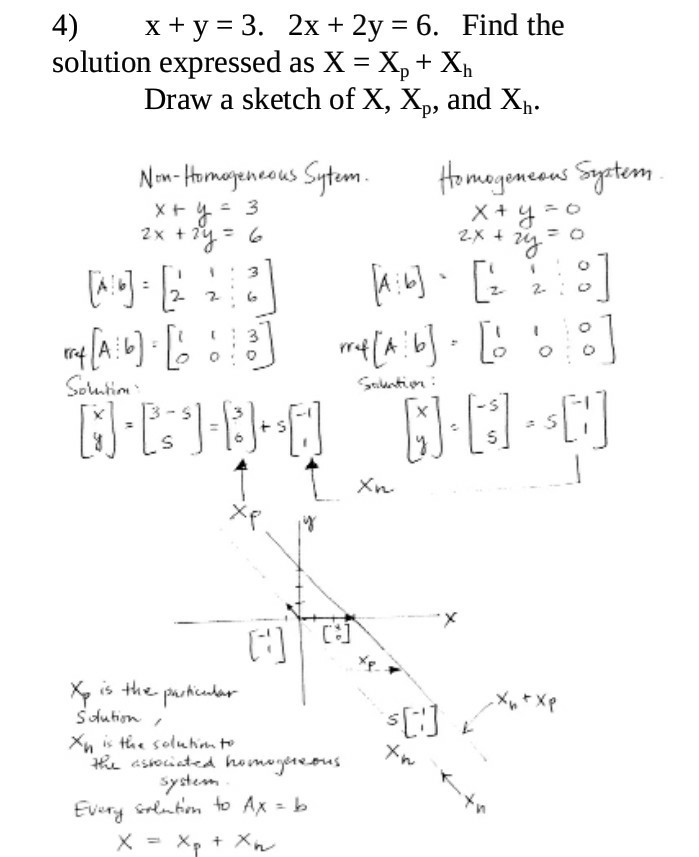 4) x + y = 3. 2x + 2y = 6. Find the
solution expressed as X = Xₚ + Xₕ
Draw a sketch of X, Xₚ, and Xₕ.
Non-Homogeneous Sytem.
x + y = 3
2x + 2y = 6
[A⋮b] = [1 1 ⋮ 3
2 2 ⋮ 6]
rref [A⋮b] = [1 1 ⋮ 3
0 0 ⋮ 0]
Solution:
[x
y] = [3 - s
s] = [3
0] + s[-1
1]
Xₚ
Homogeneous System.
x + y = 0
2x + 2y = 0
[A⋮b] = [1 1 ⋮ 0
2 2 ⋮ 0]
rref [A⋮b] = [1 1 ⋮ 0
0 0 ⋮ 0]
Solution:
[x
y] = [-s
s] = s[-1
1]
Xₕ
y
x
[-1
1]
[3
0]
Xₚ
s[-1
1]
Xₕ
Xₕ + Xₚ
Xₕ
Xₚ is the particular
Solution,
Xₕ is the solution to
the associated homogereous
system.
Every solution to Ax = b
X = Xₚ + Xₕ